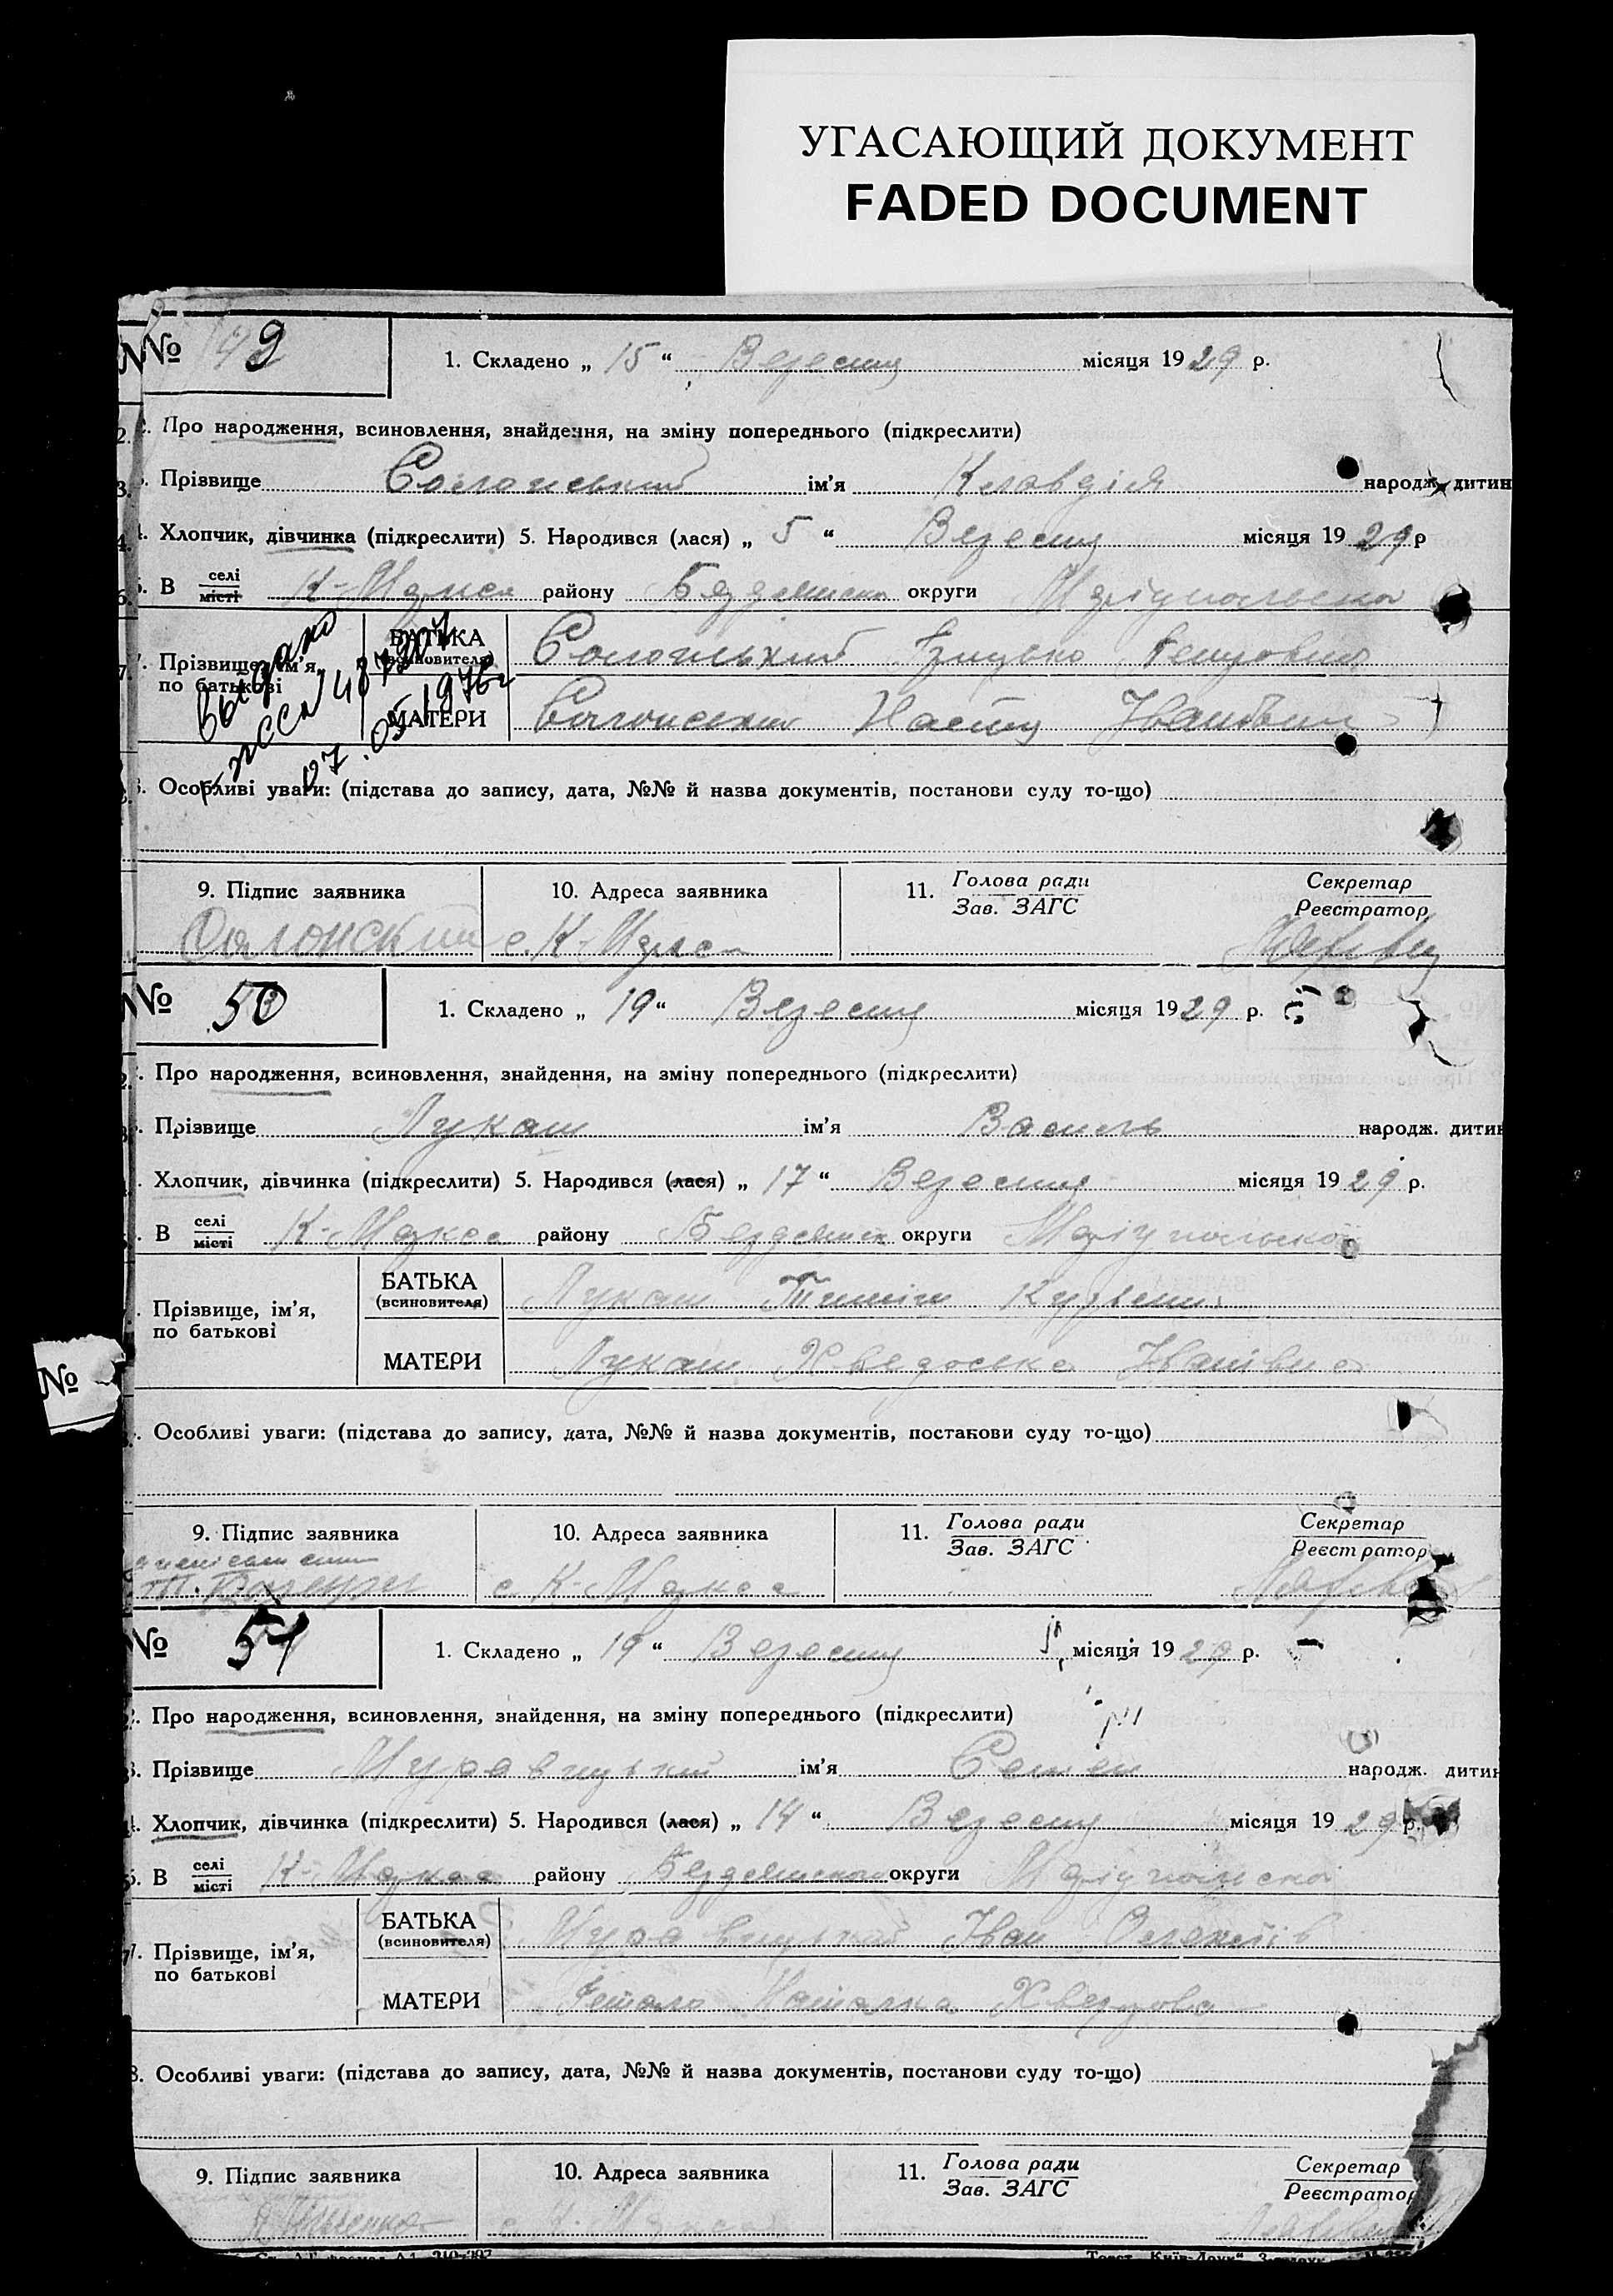 УГАСАЮЩИЙ ДОКУМЕНТ
FADED DOCUMENT
№ 9
1. Складено „ 15 “ Вересня місяця 1929 р.
2. Про народження, всиновлення, знайдення, на зміну попереднього (підкреслити)
3. Прізвище Солонський ім’я Клавдія народж. дитин
4. Хлопчик, дівчинка (підкреслити) 5. Народився (лася) „ 5 “ Вересня місяця 1929 р
6. В селі місті К-Маркса району Бердянська округи Маріупольська
7. Прізвище, ім’я, по батькові
БАТЬКА (всиновителя) Солонський Грицько
МАТЕРИ Солонська Настя Іванівна
Выдано
07.05.1976г
8. Особливі уваги: (підстава до запису, дата, №№ й назва документів, постанови суду то-що)
9. Підпис заявника 10. Адреса заявника 11. Голова ради Зав. ЗАГС Секретар Реєстратор
Солонский с. К-Маркса
№ 50
1. Складено „ 19 “ Вересня місяця 1929 р.
2. Про народження, всиновлення, знайдення, на зміну попереднього (підкреслити)
3. Прізвище Лукаш ім’я Василь народж. дитин
Хлопчик, дівчинка (підкреслити) 5. Народився (лася) „ 17 “ Вересня місяця 1929 р.
В селі місті К-Маркса району Бердянськ округи Маріупольської
Прізвище, ім’я, по батькові
БАТЬКА (всиновителя) Лукаш Тиміш
МАТЕРИ Лукаш Хведоська Іванівна
Особливі уваги: (підстава до запису, дата, №№ й назва документів, постанови суду то-що)
9. Підпис заявника 10. Адреса заявника 11. Голова ради Зав. ЗАГС Секретар Реєстратор
с. К-Маркса
№
№ 51
1. Складено „ 19 “ Вересня місяця 1929 р.
2. Про народження, всиновлення, знайдення, на зміну попереднього (підкреслити)
3. Прізвище ім’я Семен народж. дитин
4. Хлопчик, дівчинка (підкреслити) 5. Народився (лася) „ 14 “ Вересня місяця 1929 р.
6. В селі місті К-Маркса району Бердянської округи Маріупольської
7. Прізвище, ім’я, по батькові
БАТЬКА (всиновителя) Іван
МАТЕРИ Наталка
8. Особливі уваги: (підстава до запису, дата, №№ й назва документів, постанови суду то-що)
9. Підпис заявника 10. Адреса заявника 11. Голова ради Зав. ЗАГС Секретар Реєстратор